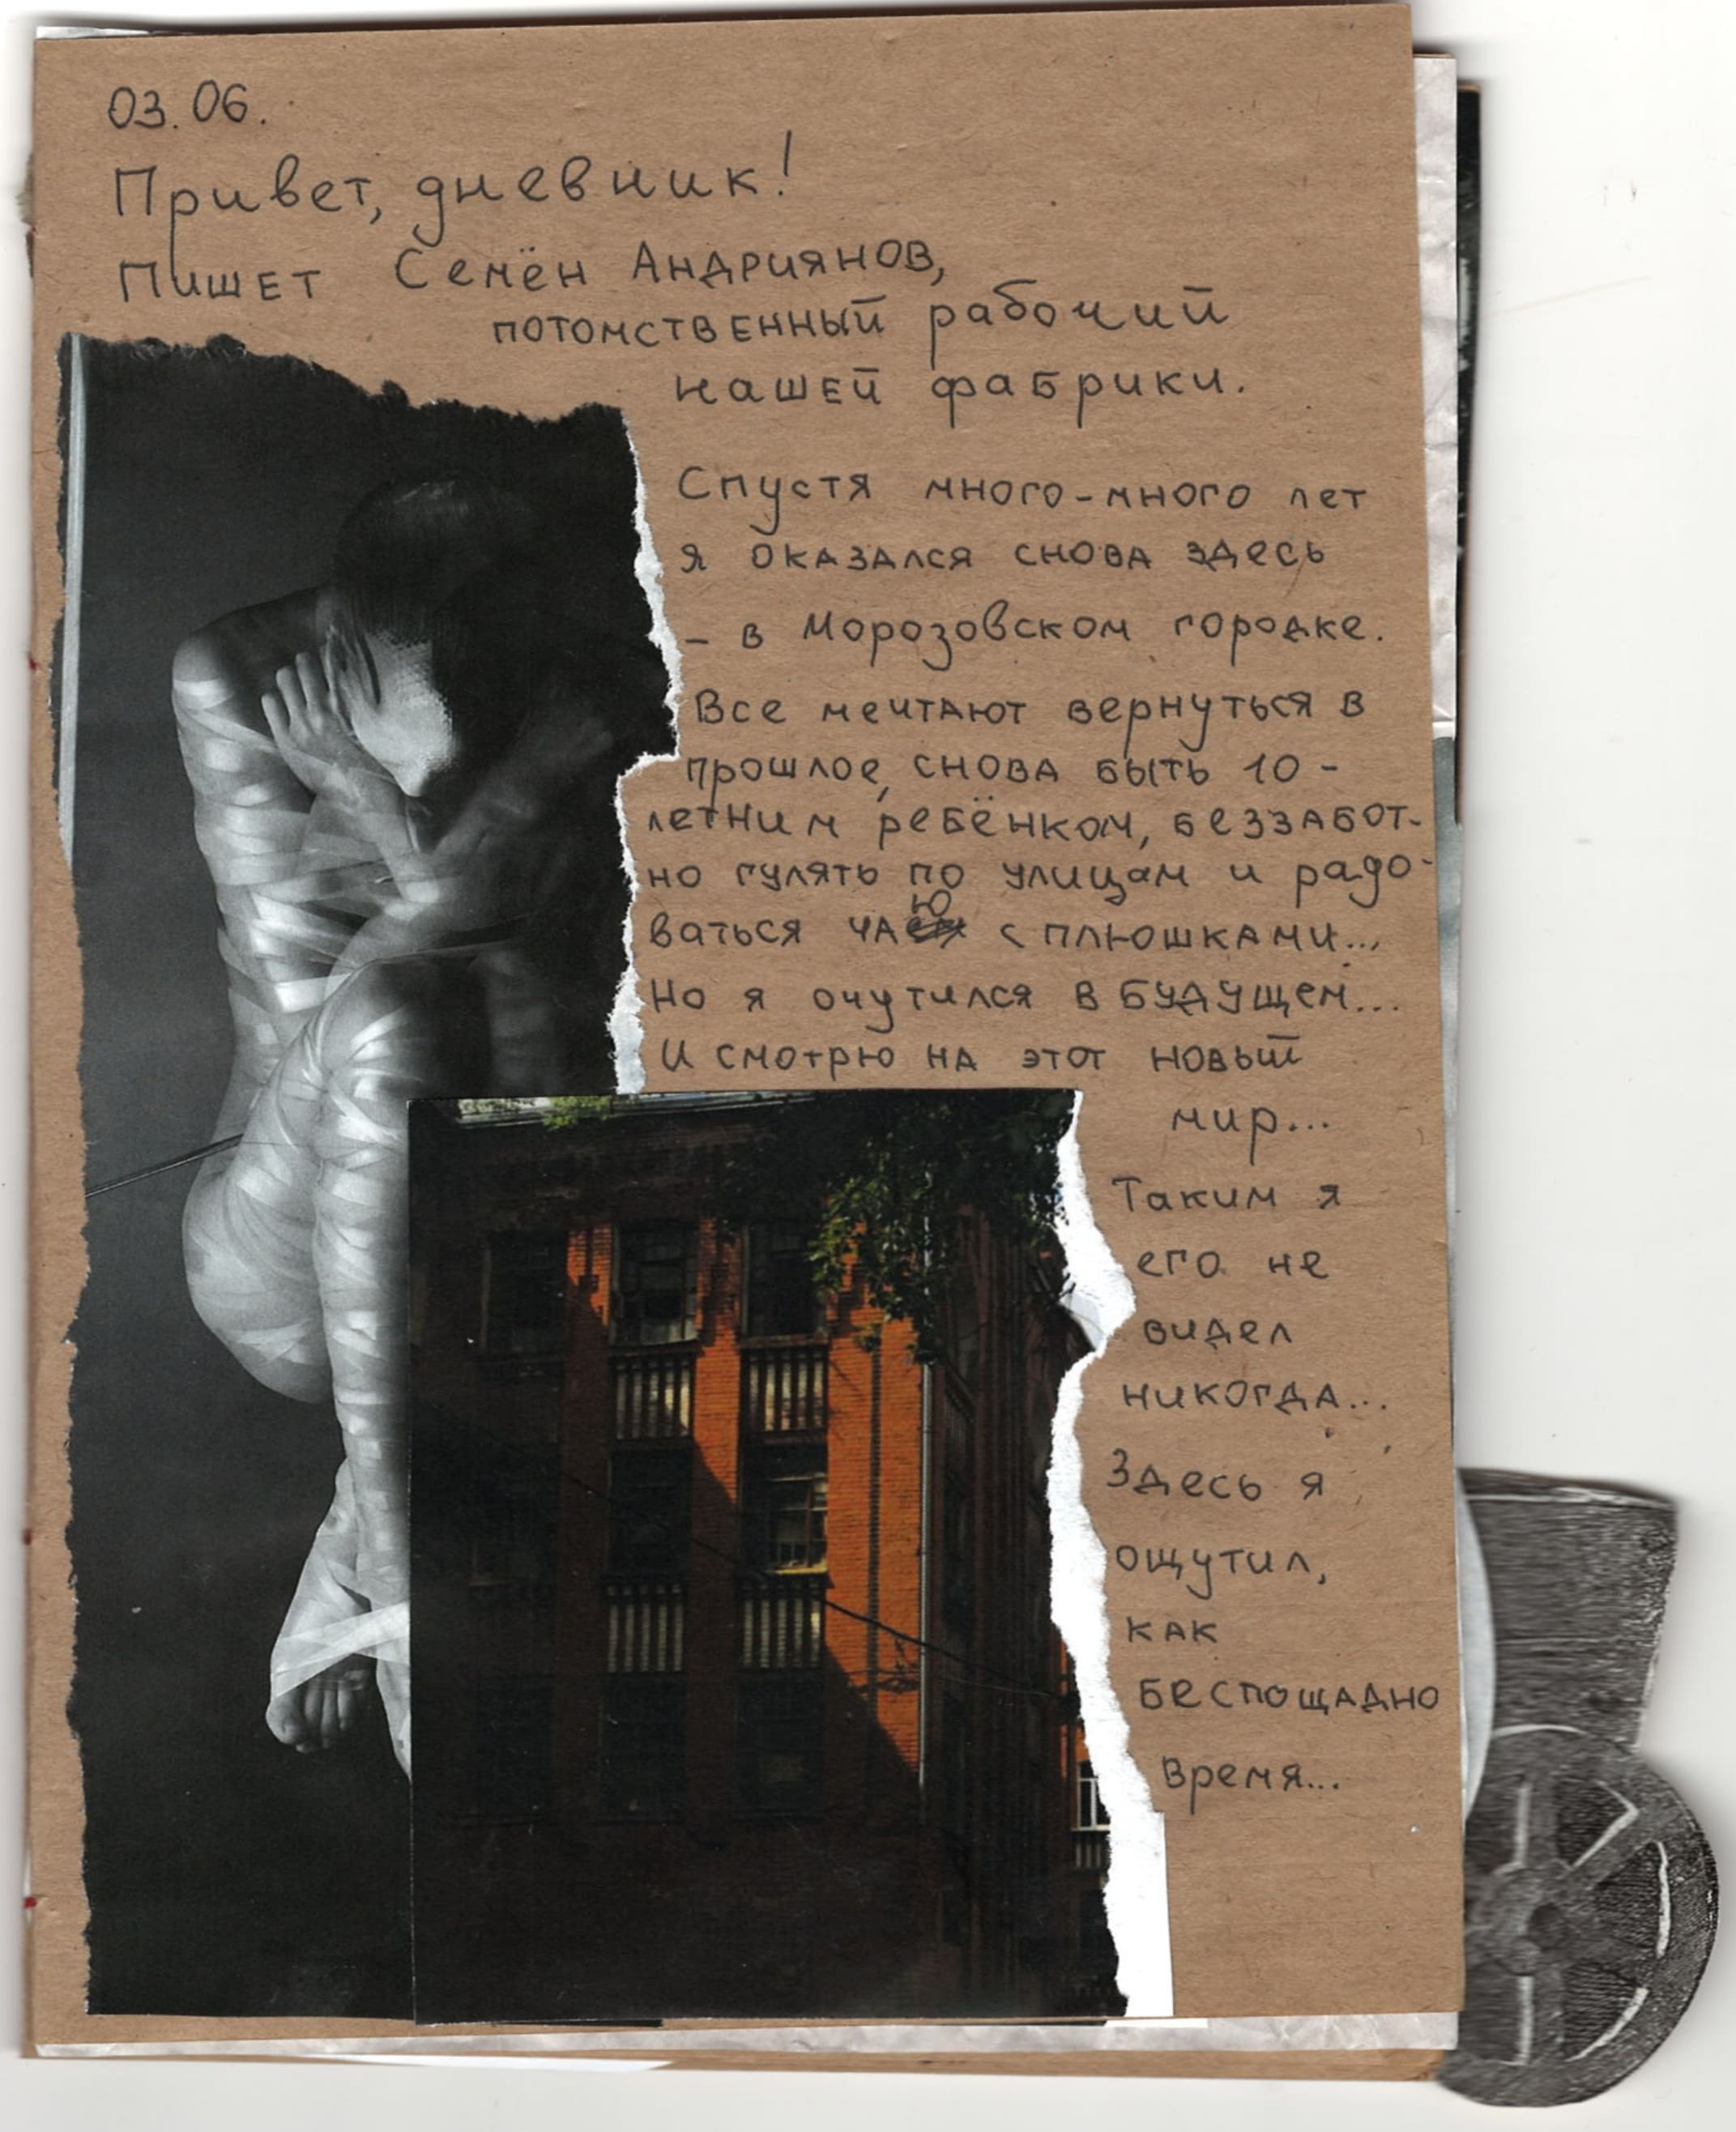 03.06.
Привет, дневник!
Пишет Семён Андриянов,
потомственный рабочий
нашей фабрики.
Спустя много-много лет
я оказался снова здесь
- в Морозовском городке.
Все мечтают вернуться в
прошлое, снова быть 10-
летним ребёнком, беззабот-
но гулять по улицам и радо-
ваться чаю с плюшками...
Но я очутился в будущем...
И смотрю на этот новый
мир...
Таким я
его не
видел
никогда...
Здесь я
ощутил,
как
беспощадно
время...